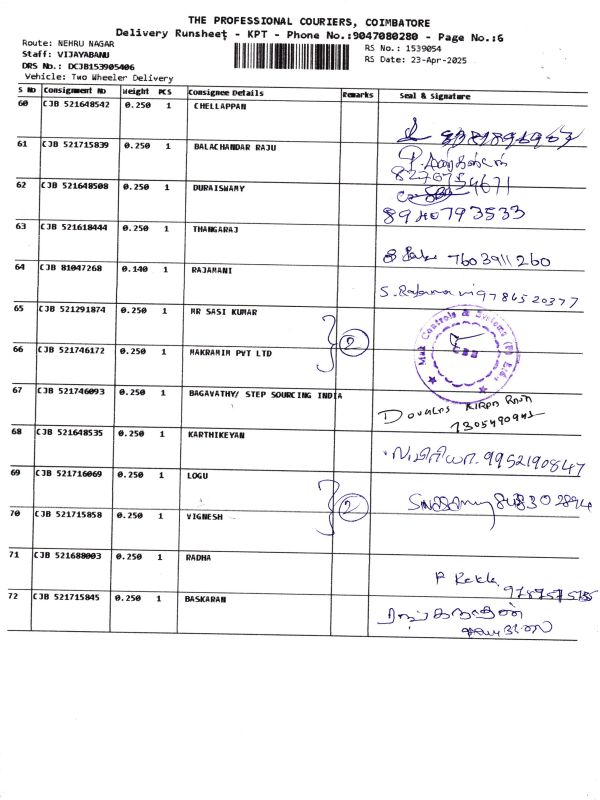 THE PROFESSIONAL COURIERS, COIMBATORE
Delivery Runsheet - KPT - Phone No.:9047080280 - Page No.:6
Route: NEHRU NAGAR
Staff: VIJAYABANU
DRS No.: DCJB153905406
Vehicle: Two Wheeler Delivery
RS No.: 1539054
RS Date: 23-Apr-2025
S No Consignment No Weight PCS Consignee Details Remarks Seal & Signature
60 CJB 521648542 0.250 1 CHELLAPPAN
61 CJB 521715839 0.250 1 BALACHANDAR RAJU
62 CJB 521648508 0.250 1 DURAISWAMY
8940793533
63 CJB 521618444 0.250 1 THANGARAJ
7603911260
64 CJB 81047268 0.140 1 RAJAMANI
S. Rajamani 9786520377
65 CJB 521291874 0.250 1 MR SASI KUMAR
2
Mak Controls & Systems (P) Ltd.
66 CJB 521746172 0.250 1 MAKRAMIM PVT LTD
67 CJB 521746093 0.250 1 BAGAVATHY/ STEP SOURCING INDIA
DOUGLAS KIRAN RAJA
7305490941
68 CJB 521648535 0.250 1 KARTHIKEYAN
9952190847
69 CJB 521716069 0.250 1 LOGU
2
70 CJB 521715858 0.250 1 VIGNESH
71 CJB 521688003 0.250 1 RADHA
72 CJB 521715845 0.250 1 BASKARAN